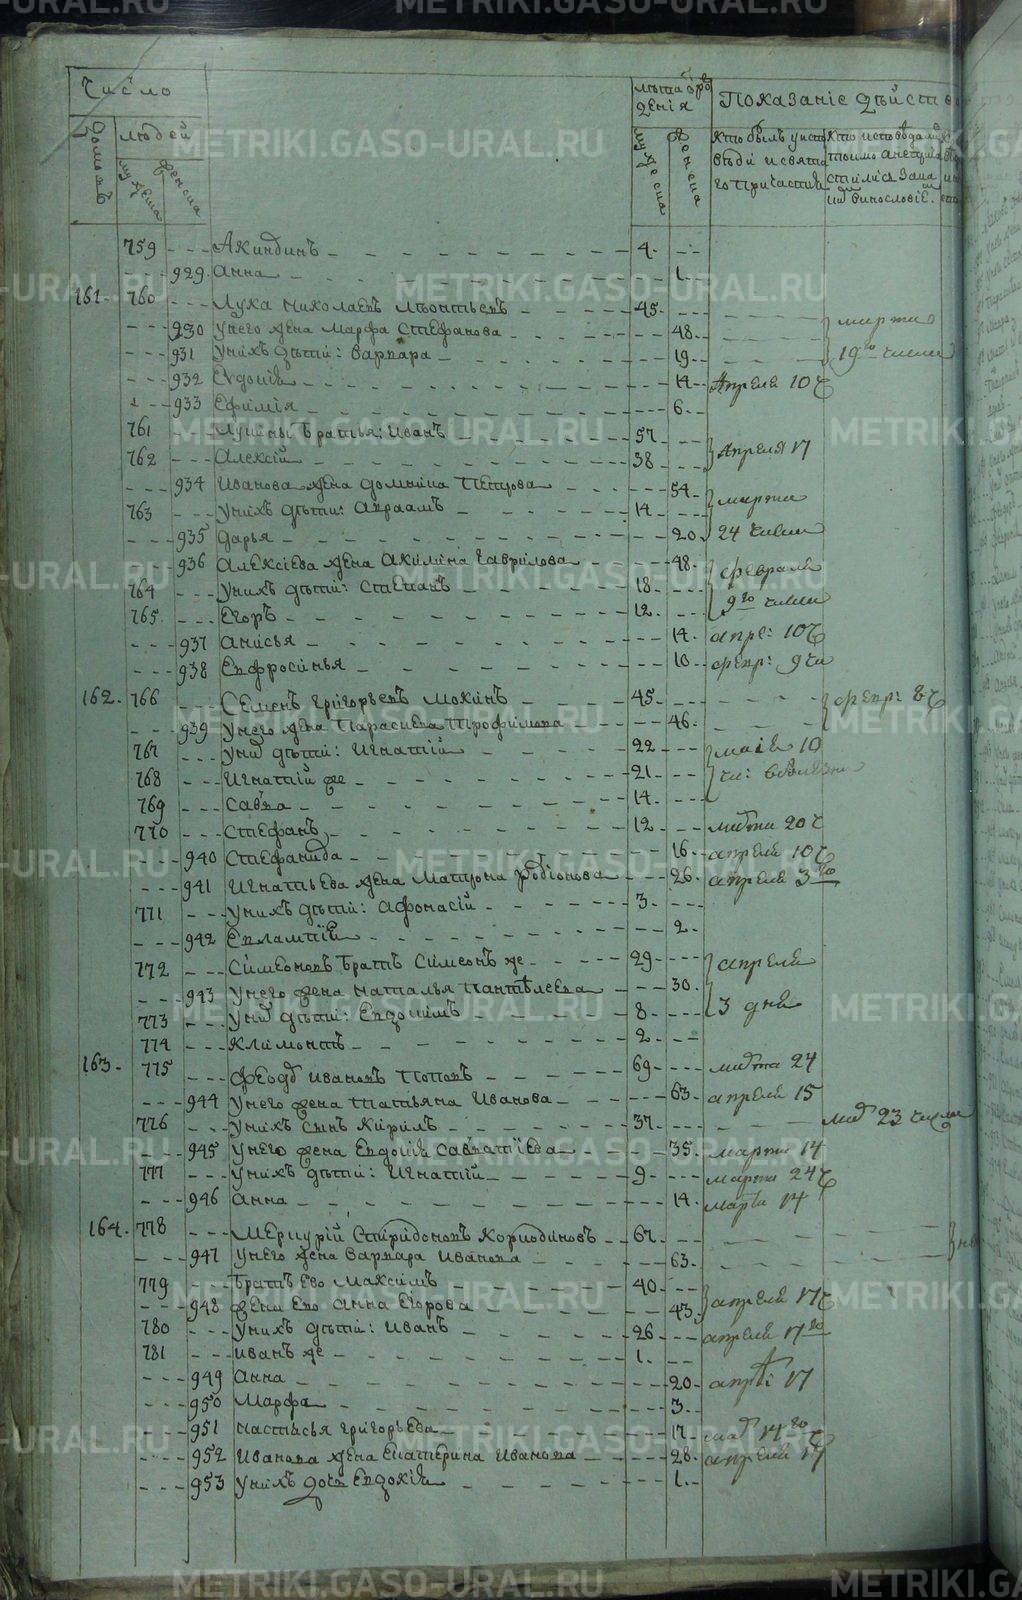 Число
лѣта ѿ рож
денїя
Показанїе дѣйств
домовъ
людей
мужеска
женска
мужеска
женска
кто былъ у испо
вѣди и свята
го причастия
кто исповѣдали
токмо а не прича
стился за ка
им винословіе.
759 Акиндинъ 4.
929 Анна 1.
161. 760 Лука Николаевъ Леонтьевъ 45.
930 У него жена Марфа Стефанова 48 марта
931 У нихъ дѣти: Варвара 19 19го числа
932 Евдокия 14 Апреля 10 ч
933 Ефимїя 6.
761 Лукины братья: Иванъ 57
762 Алексїй 38 Апреля 17
934 Иванова жена Домнина Петрова 54. марта
763 У нихъ дѣти: Авраамъ 14
935 Дарья 20 24 числа
936 Алексїева жена Акилина Гаврилова 48. февраля
764 У нихъ дѣти: Степанъ 18 9го числа
765. Егоръ 12.
937 Анисья 14. апре: 10 ч
938 Евфросинья 10 февр: 9 чи
162. 766 Семенъ Григорьевъ Мокинъ 45. февр: 8 ч
939 У него жена Параскева Трофимова 46.
767 У ниⷯ дѣти: Игнатїй 22 маия 10
768 Игнатїй же 21
769 Савва 14.
770 Стефанъ 12 марта 20 ч
940 Стефанида 16. апреля 10 ч
941 Игнатьева жена Матрона Родіонова 26. апреля 3го
771 У нихъ дѣти: Афонасїй 3.
942 Евлампїя 2.
772 Симеоновъ братъ Симеонъ же 29 апреля
943 У него жена Наталья Пантѣлеева 30. 3 дня
773 У ниⷯ дѣти: Евдокимъ 8
774 Климонтъ 2.
163. 775 Феодⷪ Ивановъ Поповъ 69 марта 24
944 У него жена Татьяна Иванова 63. апреля 15
776 У нихъ сынъ Кирилъ 37. мар 23 числа
945 У него жена Евдокия Савватїева 35. марта 14
777 У нихъ дѣти: Игнатїй 9 марта 24 ч
946 Анна 14. марта 14
164. 778 Меркурїй Спиридоновъ 67.
947 У него жена Варвара Иванова 63.
779 Братъ ево Максимъ 40
948 жена ево Анна Егорова 43 апреля 17 ч
780 У нихъ дѣти: Иванъ 26 апреля 17го
781 Иванъ же 1.
949 Анна 20 апрѣ 17
950 Марфа 3.
951 Настасья Григорьева 17 мар 14го
952 Иванова жена Екатерина Иванова 28. апреля 17
953 У нихъ дочь Евдокия 1.
METRIKI.GASO-URAL.RU